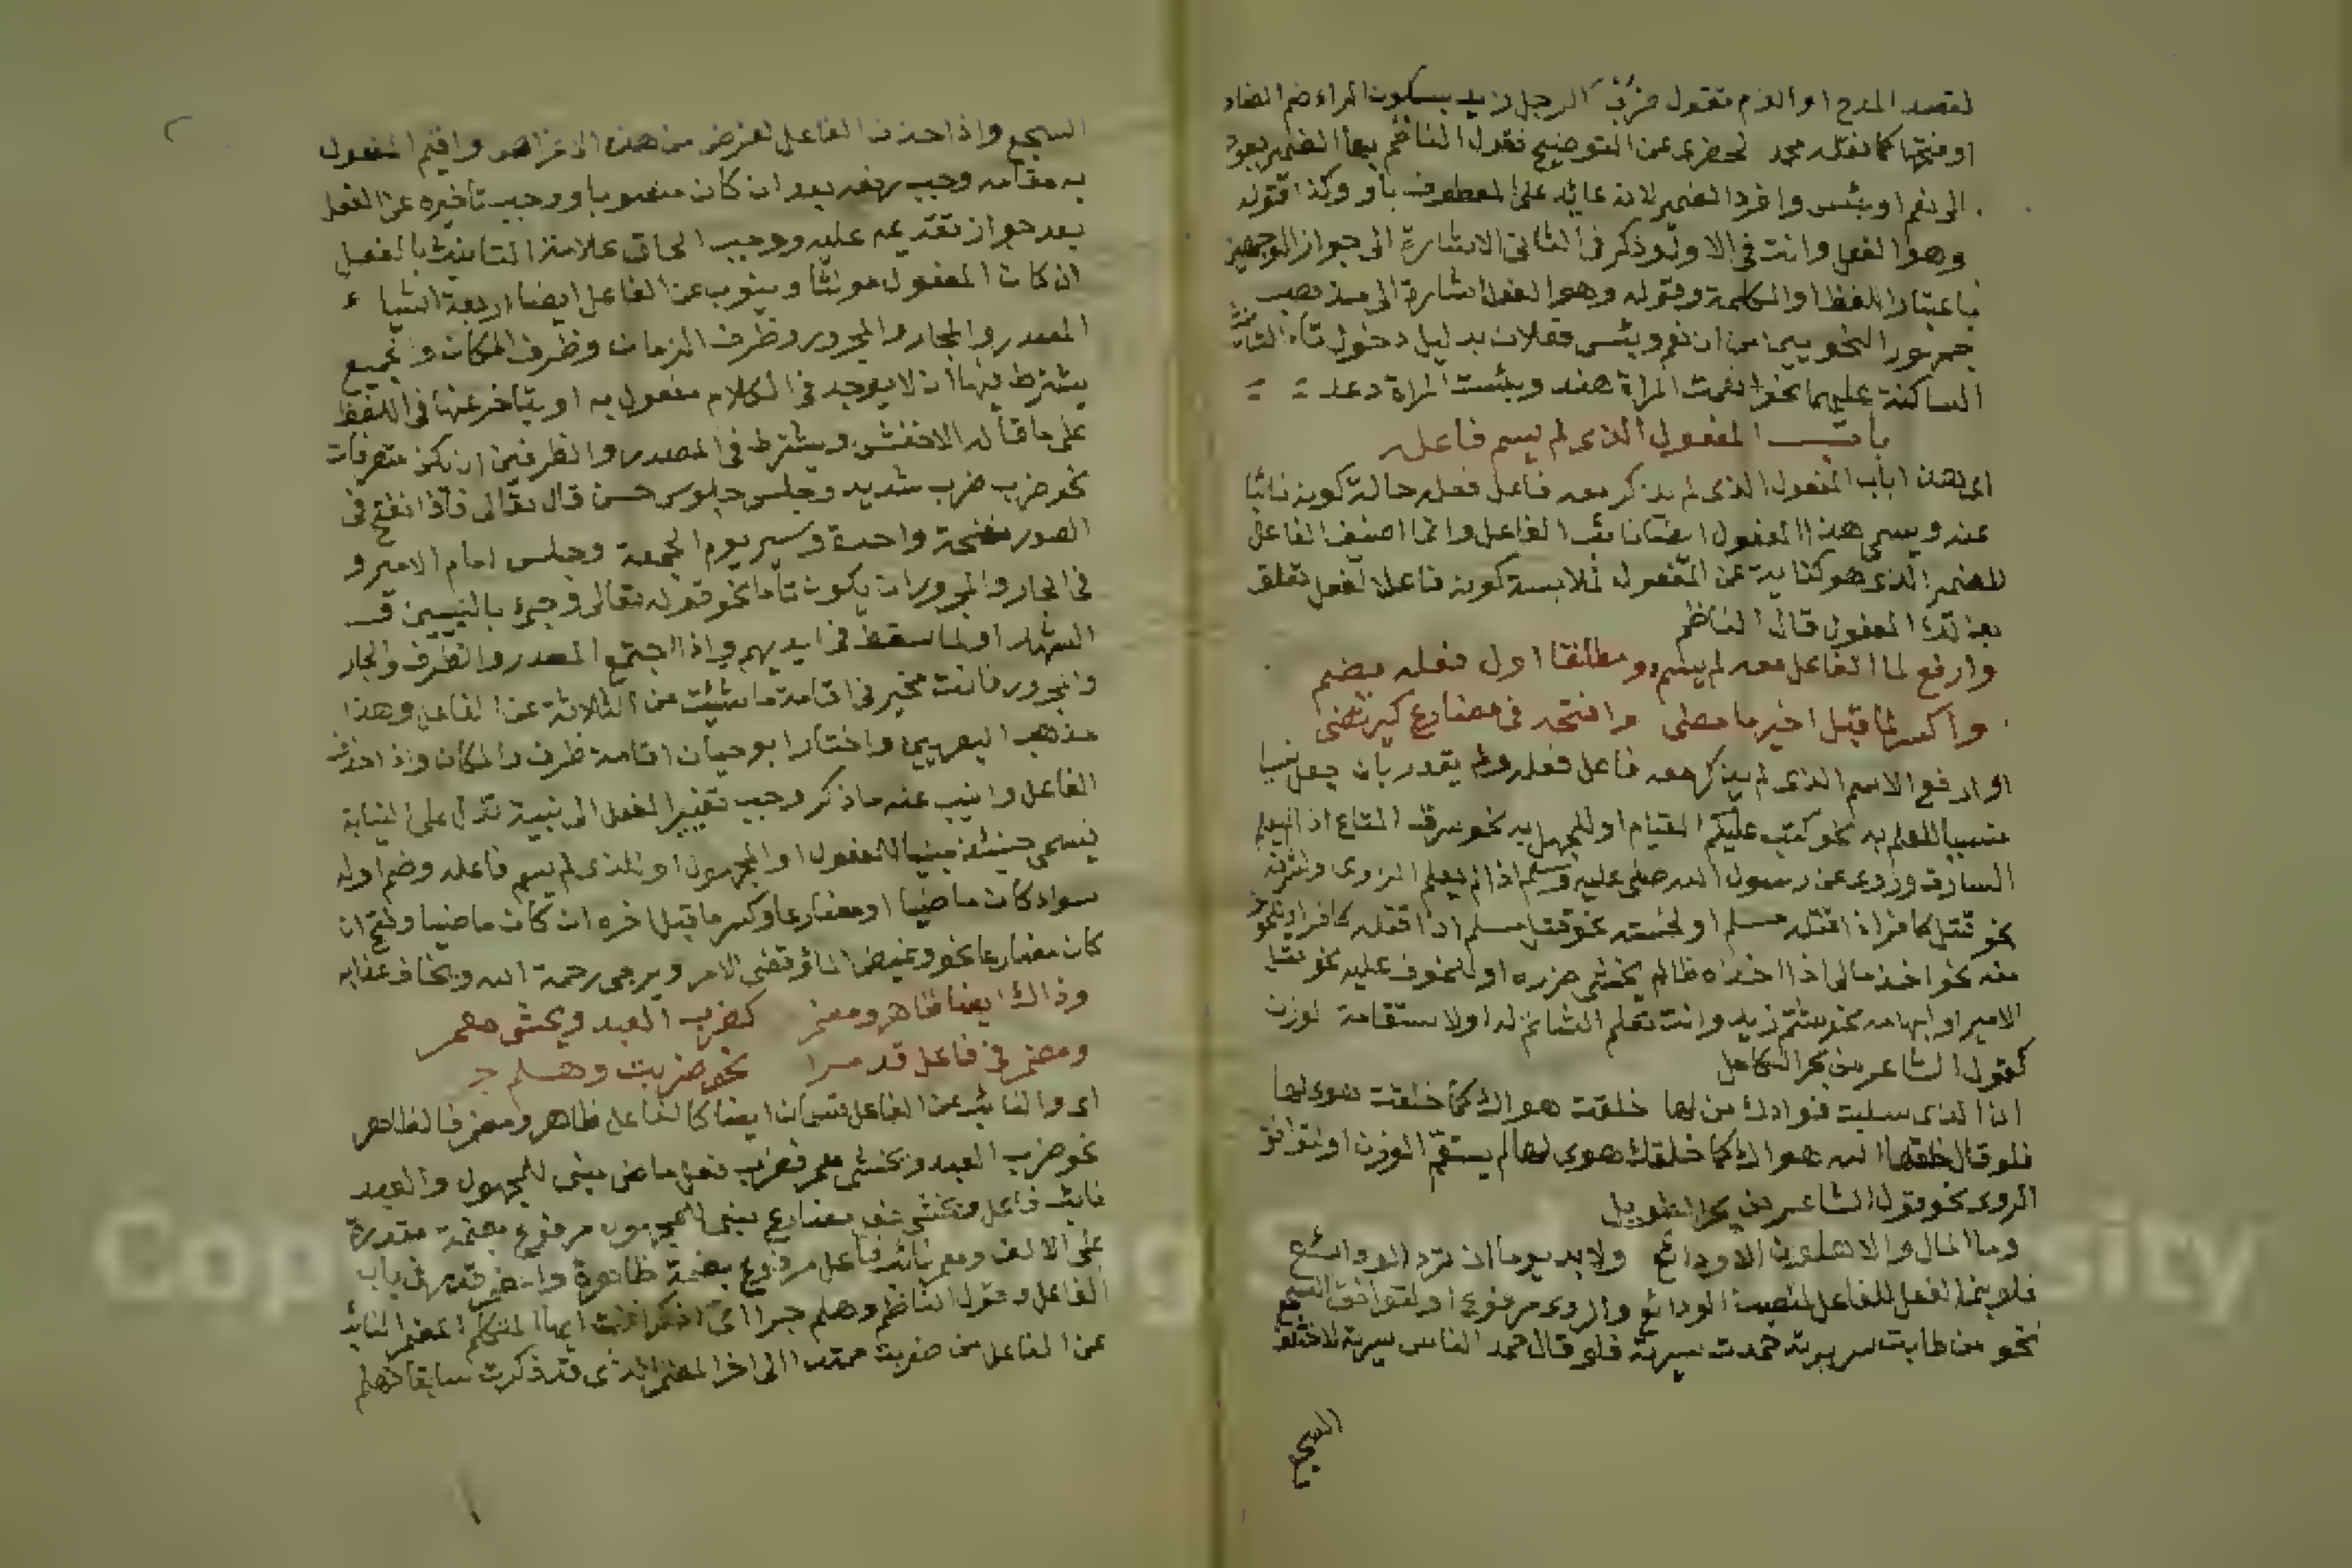 لقصد المدح او الذم تقول ضرب الرجل زيد بسكون الراء وضم الضاد
او فتحها كما نقله محمد لحضرى عن التوضيح فقول الناظم بها الضمير يعود
الى نعم او بئس وافرد الضمير لانه عائد على المعطوف باو وكذا قوله
وهو الفعل وانث فى الاول وذكر فى الثانى الاشارة الى جواز الوجهين
باعتبار اللفظ او الكلمة وقوله وهو الفعل اشارة الى مذهب
جمهور النحويين من ان نعم وبئس فعلان بدليل دخول تاء التانيث
الساكنة عليهما نحو نعمت المراة هند وبئست المراة دعد
باب المفعول الذى لم يسم فاعله
اى هذا باب المفعول الذى لم يذكر معه فاعل فعله حالة كونه نائبا
عنه ويسمى هذا المفعول ايضا نائب الفاعل وانما اضيف الفاعل
للضمير الذى هو كناية عن المفعول لملابسة كونه فاعلا لفعل تعلق
بذلك المفعول قال الناظم
وارفع لما الفاعل معه لم يسم ومطلقا اول فعله بضم
واكسر لما قبل اخير ما مضى وافتحه فى مضارع كيرتضى
اى ارفع الاسم الذى لم يذكر معه فاعل فعله ولم يقدر بان جعل نسيا
منسيا للعلم به نحو كتب عليكم القيام او للجهل به نحو سرق المتاع اذا لم يعلم
السارق وروى عن رسول الله صلى عليه وسلم اذا لم يعلم الروى ولشرفه
نحو قتل كافر اذا قتله مسلم او لخسته نحو قتل مسلم اذا قتله كافر او للخوف
منه نحو اخذ مالى اذا اخذه ظالم يخشى ضرره او للخوف عليه نحو
الامير او ابهامه نحو شتم زيد وانت تعلم الشاتم له او لاستقامة الوزن
كقول الشاعر من بحر الكامل
ان الذى سلبت فوادك من لها خلقت هواك كما خلقت هوى لها
فلو قال خلقها الله هواك كما خلقك هوى لها لم يستقم الوزن او لتوافق
الروى نحو قول الشاعر من بحر الطويل
وما المال والاهلون الا ودائع ولا بد يوما ان ترد الودائع
فلو بنى الفعل للفاعل لنصبت الودائع والروى مرفوع او لتوافق السجع
نحو من طابت سريرته حمدت سيرته فلو قال حمد الناس سيرته لاختلف
السجع
السجع واذا حذف الفاعل لغرض من هذه الاغراض واقيم المفعول
به مقامه وجب رفعه بعد ان كان منصوبا ووجب تاخيره عن الفعل
بعد جواز تقديمه عليه ووجب الحاق علامة التانيث بالفعل
ان كان المفعول مونثا وينوب عن الفاعل ايضا اربعة اشياء
المصدر والجار والمجرور وظرف الزمان وظرف المكان والجميع
يشترط فيها ان لا يوجد فى الكلام مفعول به او يتاخر عنها فى اللفظ
على ما قاله الاخفش ويشترط فى المصدر والظرفين ان يكن متصرفات
نحو ضرب ضرب شديد وجلس جلوس حسن قال تعالى فاذا نفخ فى
الصور نفخة واحدة وسير يوم الجمعة وجلس امام الامير و
فى الجار والمجرور ان يكون تاما نحو قوله تعالى وجىء بالنبيين و
الشهداء ولما سقط فى ايديهم واذا اجتمع المصدر والظرف والجار
والمجرور فانت مخير فى اقامة ما شئت من الثلاثة عن الفاعل وهذا
مذهب البصريين واختار ابو حيان اقامة ظرف المكان واذا حذف
الفاعل وانيب عنه ما ذكر وجب تغيير الفعل الى بنية تدل على النيابة
فيسمى حينئذ مبنيا للمفعول او المجهول او للذى لم يسم فاعله وضم اوله
سواء كان ماضيا او مضارعا وكسر ما قبل اخره ان كان ماضيا وفتح ان
كان مضارعا نحو وغيض الماء وقضى الامر ويرجى رحمة الله ويخاف عذابه
وذاك ايضا ظاهر ومضمر كضرب العبد ويخشى معمر
ومضمر فى فاعل قد مرا نحو ضربت وهلم جرا
اى والنائب عن الفاعل قسمان ايضا كالفاعل ظاهر ومضمر فالظاهر
نحو ضرب العبد ويخشى معمر فضرب فعل ماض مبنى للمجهول والعبد
نائب فاعل ويخشى فعل مضارع مبنى للمجهول مرفوع بضمة مقدرة
على الالف ومعمر نائب فاعل مرفوع بضمة ظاهرة والمضمر قد مر فى باب
الفاعل وقول الناظم وهلم جرا اى اذكر انت ايها المتكلم المضمر النائب
عن الفاعل من ضربت ممتدا الى اخر المضمر الذى قد ذكرت سابقا فهلم